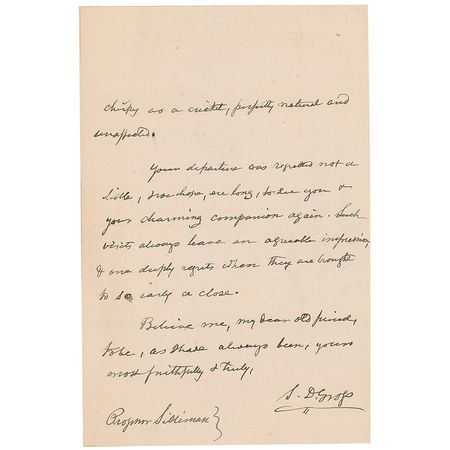 chirpy as a cricket, perfectly natural and
unaffected.
Your departure was regretted not a
little, & we hope, ere long, to see you &
your charming companion again. Such
visits always leave an agreeable impression,
& one deeply regrets when they are brought
to so early a close.
Believe me, my dear old friend,
to be, as I have always been, yours
most faithfully & truly,
S. D. Gross
Professor Silliman}